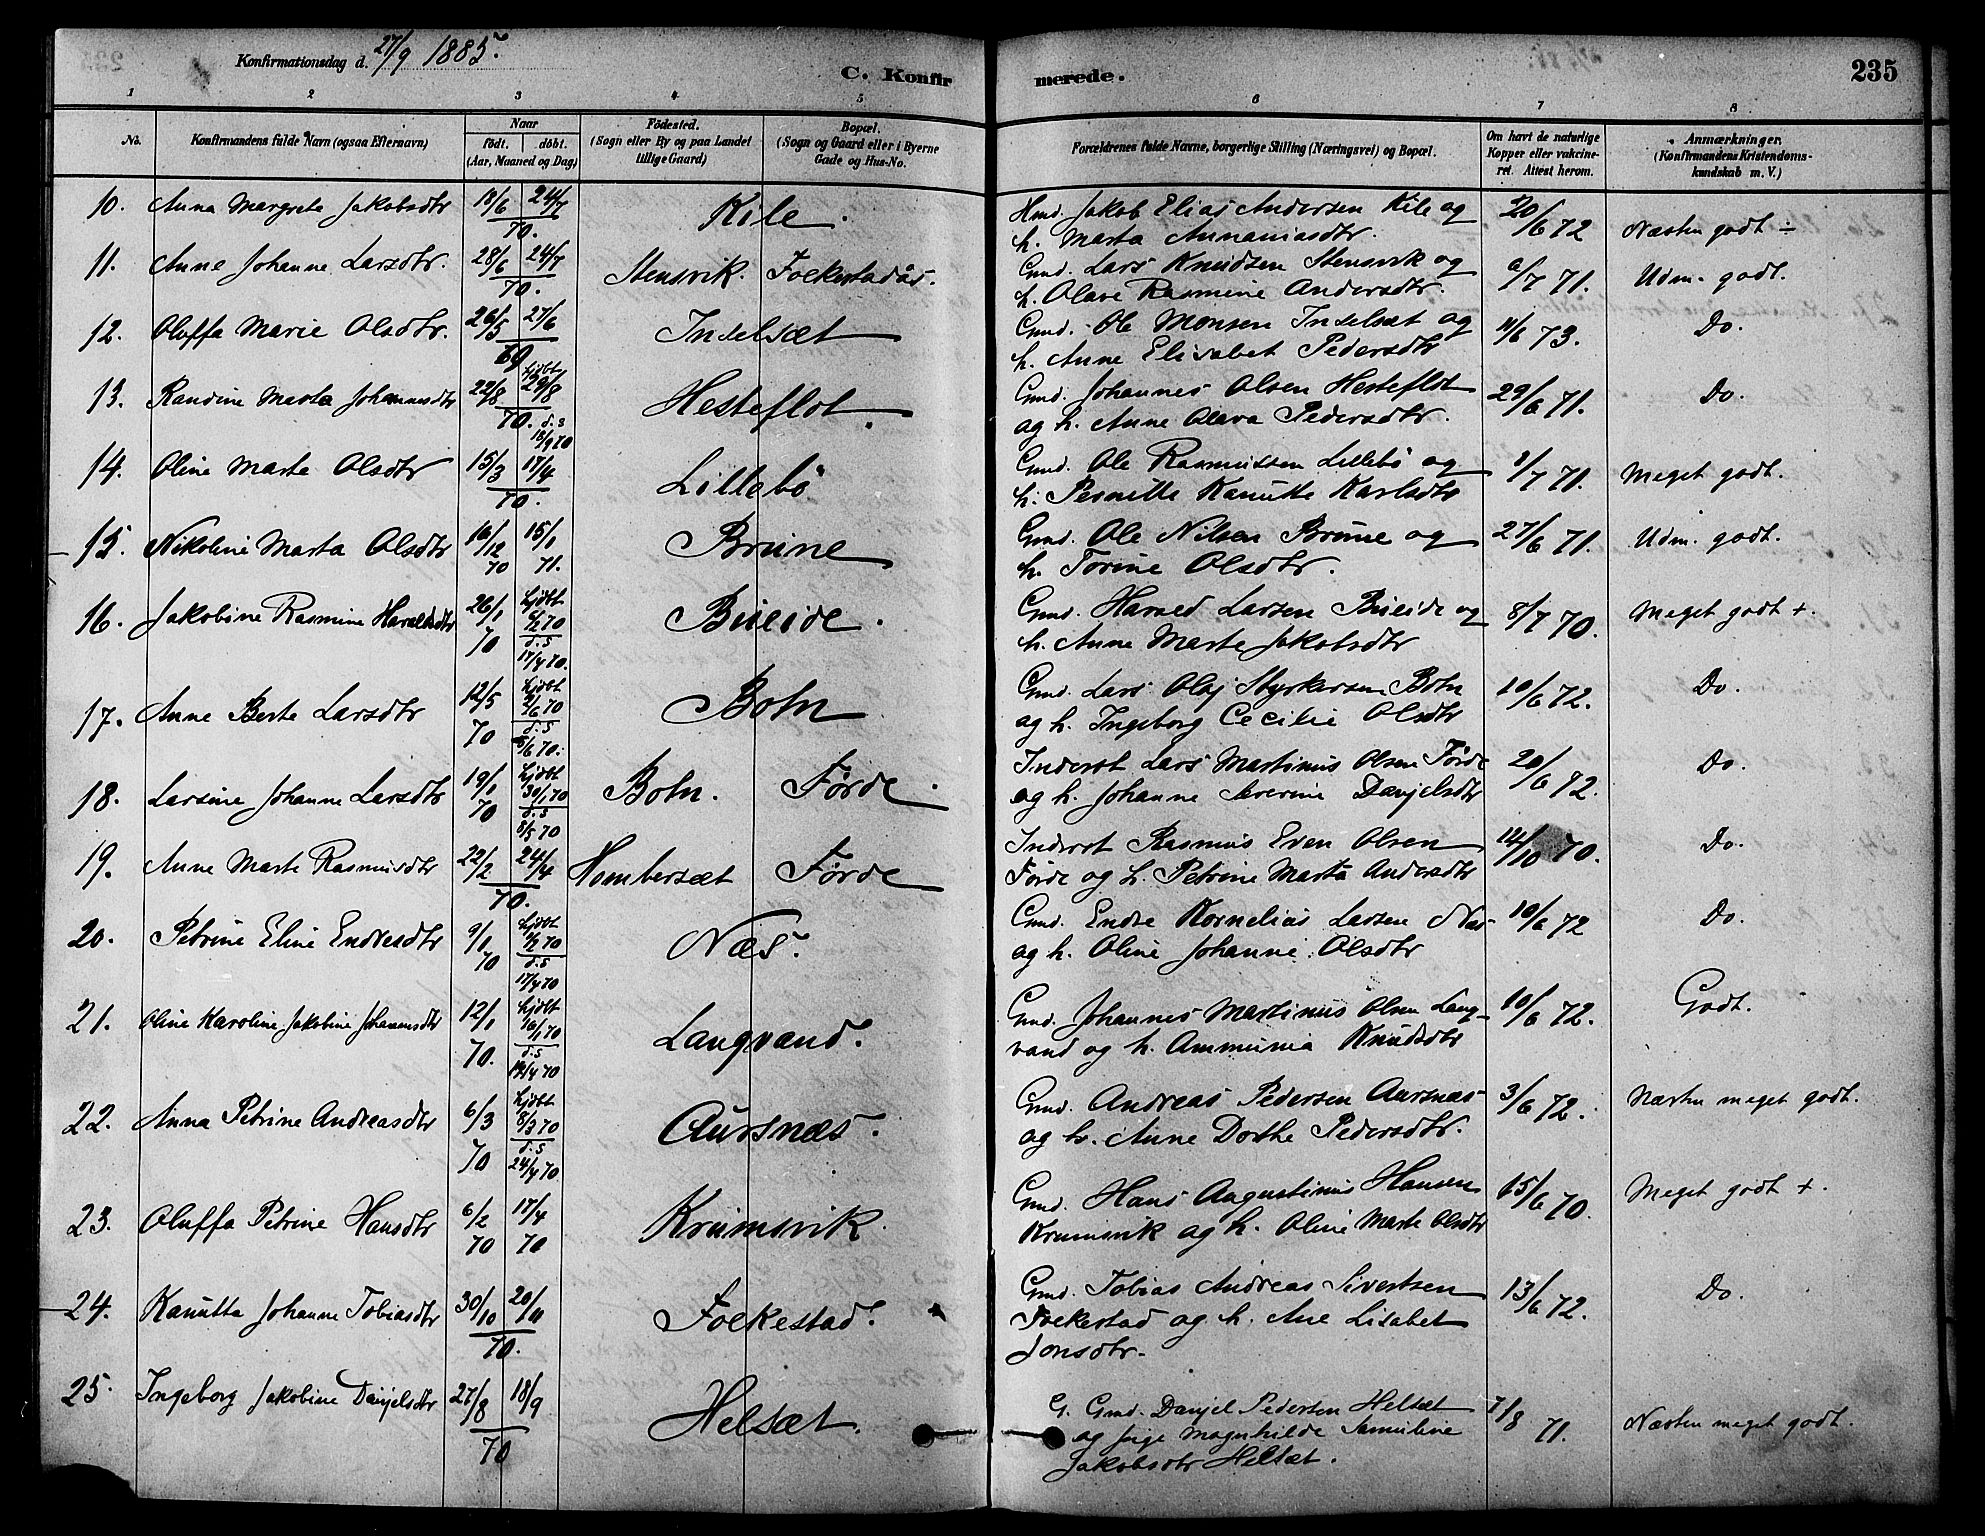 Konfirmationsdag d. 27/9 1885.
C. Konfirmerede.
235
1 2 3 4 5 6 7 8
No.
Konfirmandens fulde Navn (ogsaa Efternavn)
Naar
født. døbt.
(Aar, Maaned og Dag)
Fødested.
(Sogn eller By og paa Landet
tillige Gaard)
Bopæl.
(Sogn og Gaard eller i Byerne
Gade og Hus-No.
Forældrenes fulde Navne, borgerlige Stilling (Næringsvei) og Bopæl.
Om havt de naturlige
Kopper eller vakcine-
ret. Attest herom.
Anmærkninger.
(Konfirmandens Kristendoms-
kundskab m. V.)
10. Anna Margrete Jakobsdtr 18/6 24/7 70. Kile. Hmd. Jakob Elias Andersen Kile og 20/6 72 Næsten godt ÷
h. Marta Annaniasdtr.
11. Anne Johanne Larsdtr. 28/6 24/7 70. Stensvik. Folkestadås. Gmd. Lars Knudsen Stensvik og 6/7 71. Udm. godt.
h. Olave Rasmine Andersdtr.
12. Oluffa Marie Olsdtr. 26/5 27/6 69 Indelsæt Gmd. Ole Monsen Indelsæt og 11/6 73. Do.
h. Anne Elisabet Pedersdtr
13. Randine Marta Johannesdtr 22/8 hjdbt 29/8 70. d. s 18/9 70 Hesteflot. Gmd. Johannes Olsen Hesteflot 29/6 71. Do.
og h. Anne Olava Pedersdtr.
14. Oline Marte Olsdtr 15/3 17/4 70. Lillebö Gmd. Ole Rasmussen Lillebö og 1/7 71. Meget godt.
h. Pernille Kanutte Karlsdtr
15. Nikoline Marta Olsdtr 16/12 70 15/1 71. Brune Gmd. Ole Nilsen Brune og 27/6 71. Udm. godt.
h. Torine Olsdtr.
16. Jakobine Rasmine Haraldsdtr 26/1 70 hjdbt 6/2 70 d. s 17/4 70. Bueide. Gmd. Harald Larsen Bueide og 8/7 70. Meget godt +.
h. Anne Marte Jakobsdtr
17. Anne Berte Larsdtr 12/5 70 hjdbt 2/6 70 d. s 5/6 70. Botn Gmd. Lars Olaj Styrkersen Botn 10/6 72. Do.
og h. Ingeborg Cecilie Olsdtr
18. Larsine Johanne Larsdtr 19/1 70 hjdbt 30/1 70 d. s 8/5 70 Botn. Førde. Inderst Lars Martinus Olsen Førde 20/6 72. Do.
og h. Johanne Severine Danjelsdtr
19. Anne Marte Rasmusdtr 22/2 24/4 70. Hombersæt Førde Inderst Rasmus Even Olsen 14/10 70. Do.
Førde og h. Petrine Marta Andersdtr
20. Petrine Eline Endresdtr 9/1 70 hjdbt 1/2 70 d. s 17/4 70 Næs. Gmd. Endre Kornelias Larsen Næs 10/6 72 Do.
og h. Oline Johanne Olsdtr
21. Oline Karoline Jakobine Johannesdtr 12/1 70. hjdbt 16/1 70 d. s 17/4 70 Langvand. Gmd. Johannes Martinus Olsen Lang- 10/6 72. Godt.
vand og h. Ammunia Knudsdtr
22. Anna Petrine Andreasdtr 6/3 70 hjdbt 8/3 70 d. s 24/4 70 Aursnæs. Gmd. Andreas Pedersen Aursnæs 3/6 72. Næsten meget godt.
og h. Anne Dorthe Pedersdtr.
23. Oluffa Petrine Hansdtr 6/2 70 17/4 70 Krumsvik. Gmd. Hans Augustinus Hansen 15/6 70. Meget godt +.
Krumsvik og h. Oline Marte Olsdtr
24. Kanutta Johanne Tobiasdtr 30/10 20/11 70. Folkestad. Gmd. Tobias Andreas Sivertsen 13/6 72. Do.
Folkestad og h. Ane Lisabet
Jonsdtr.
25. Ingeborg Jakobine Danjelsdtr 27/8 18/9 70 Helsæt. G. Gmd. Danjel Pedersen Helsæt 7/8 71. Næsten meget godt.
og pige Magnhilde Samuline
Jakobsdtr Helsæt.